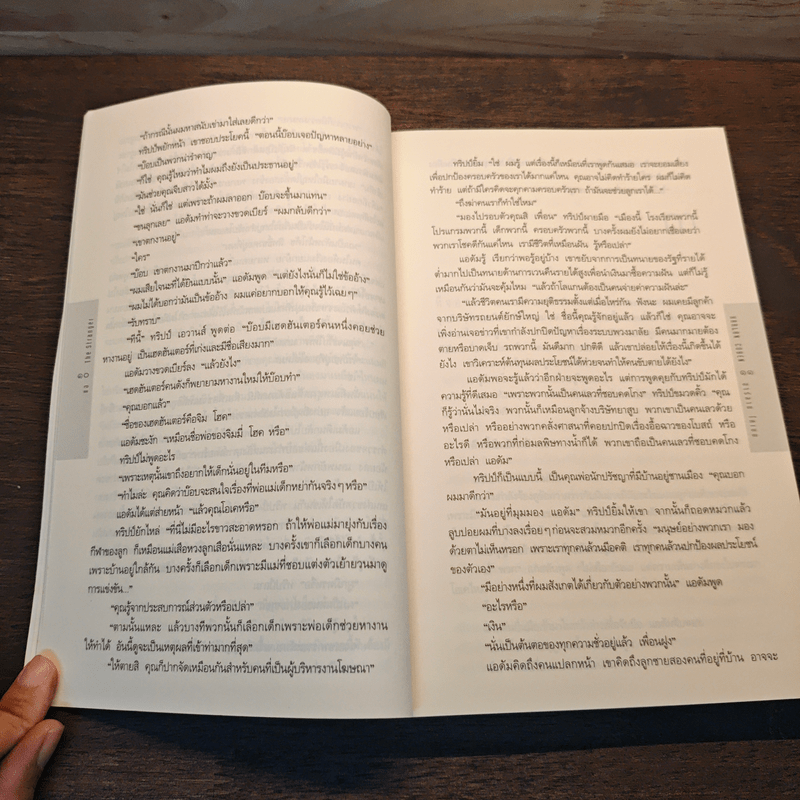 "ถ้ากรณีนั้นผมหาสนับเข่ามาใส่เลยดีกว่า"
ทริปป์พยักหน้า เขาชอบประโยคนี้ "ตอนนี้บ๊อบเจอปัญหาหลายอย่าง"
"บ๊อบเป็นพวกน่ารำคาญ"
"ก็ใช่ คุณรู้ไหมว่าทำไมผมถึงยังเป็นประธานอยู่"
"มันช่วยคุณจีบสาวได้มั้ง"
"ใช่ นั่นก็ใช่ แต่เพราะถ้าผมลาออก บ๊อบจะขึ้นมาแทน"
"ขนลุกเลย" แอดัมทำท่าจะวางขวดเบียร์ "ผมกลับดีกว่า"
"เขาตกงานอยู่"
"ใคร"
"บ๊อบ เขาตกงานมาปีกว่าแล้ว"
"ผมเสียใจนะที่ได้ยินแบบนั้น" แอดัมพูด "แต่ยังไงนั่นก็ไม่ใช่ข้ออ้าง"
"ผมไม่ได้บอกว่ามันเป็นข้ออ้าง ผมแค่อยากบอกให้คุณรู้ไว้เฉยๆ"
"รับทราบ"
"ทีนี้" ทริปป์ เอวานส์ พูดต่อ "บ๊อบมีเฮดฮันเตอร์คนหนึ่งคอยช่วย
หางานอยู่ เป็นเฮดฮันเตอร์ที่เก่งและมีชื่อเสียงมาก"
แอดัมวางขวดเบียร์ลง "แล้วยังไง"
"เฮดฮันเตอร์คนดังก็พยายามหางานใหม่ให้บ๊อบทำ"
"คุณบอกแล้ว"
"ชื่อของเฮดฮันเตอร์คือจิม โฮค"
แอดัมชะงัก "เหมือนชื่อพ่อของจิมมี่ โฮค หรือ"
ทริปป์ไม่พูดอะไร
"เพราะเหตุนั้นเขาถึงอยากให้เด็กนั่นอยู่ในทีมหรือ"
"ทำไมล่ะ คุณคิดว่าบ๊อบจะสนใจเรื่องที่พ่อแม่เด็กหย่ากันจริงๆ หรือ"
แอดัมได้แต่ส่ายหน้า "แล้วคุณโอเคหรือ"
ทริปป์ยักไหล่ "ที่นี่ไม่มีอะไรขาวสะอาดหรอก ถ้าให้พ่อแม่มายุ่งกับเรื่อง
กีฬาของลูก ก็เหมือนแม่เสือหวงลูกเสือนั่นแหละ บางครั้งเขาก็เลือกเด็กบางคน
เพราะบ้านอยู่ใกล้กัน บางครั้งก็เลือกเด็กเพราะมีแม่ที่ชอบแต่งตัวเย้ายวนมาดู
การแข่งขัน..."
"คุณรู้จากประสบการณ์ส่วนตัวหรือเปล่า"
"ตามนั้นแหละ แล้วบางทีพวกนั้นก็เลือกเด็กเพราะพ่อเด็กช่วยหางาน
ให้ทำได้ อันนี้ดูจะเป็นเหตุผลที่เข้าท่ามากที่สุด"
"ให้ตายสิ คุณก็ปากจัดเหมือนกันสำหรับคนที่เป็นผู้บริหารงานโฆษณา"
ทริปป์ยิ้ม "ใช่ ผมรู้ แต่เรื่องนี้ก็เหมือนที่เราพูดกันเสมอ เราจะยอมเสี่ยง
เพื่อปกป้องครอบครัวของเราได้มากแค่ไหน คุณอาจไม่คิดทำร้ายใคร ผมก็ไม่คิด
ทำร้าย แต่ถ้ามีใครคิดจะคุกคามครอบครัวเรา ถ้ามันจะช่วยลูกเราได้..."
"ถึงฆ่าคนเราก็ทำใช่ไหม"
"มองไปรอบตัวคุณสิ เพื่อน" ทริปป์ผายมือ "เมืองนี้ โรงเรียนพวกนี้
โปรแกรมพวกนี้ เด็กพวกนี้ ครอบครัวพวกนี้ บางครั้งผมยังไม่อยากเชื่อเลยว่า
พวกเราโชคดีกันแค่ไหน เรามีชีวิตที่เหมือนฝัน รู้หรือเปล่า"
แอดัมรู้ เรียกว่าพอรู้อยู่บ้าง เขาขยับจากการเป็นทนายของรัฐที่รายได้
ต่ำมากไปเป็นทนายด้านการเวนคืนรายได้สูงเพื่อนำเงินมาซื้อความฝัน แต่ก็ไม่รู้
เหมือนกันว่ามันจะคุ้มไหม "แล้วถ้าโลแกนต้องเป็นคนจ่ายค่าความฝันล่ะ"
"แล้วชีวิตคนเรามีความยุติธรรมตั้งแต่เมื่อไหร่กัน ฟังนะ ผมเคยมีลูกค้า
จากบริษัทรถยนต์ยักษ์ใหญ่ ใช่ ชื่อนี้คุณรู้จักอยู่แล้ว แล้วก็ใช่ คุณอาจจะ
เพิ่งอ่านเจอข่าวที่เขากำลังปกปิดปัญหาเรื่องระบบพวงมาลัย มีคนมากมายต้อง
ตายหรือบาดเจ็บ รถพวกนี้ มันดีมาก ปกติดี แล้วเขาปล่อยให้เรื่องนี้เกิดขึ้นได้
ยังไง เขาวิเคราะห์ต้นทุนผลประโยชน์ได้ห่วยจนทำให้คนขับตายได้ยังไง"
แอดัมพอจะรู้แล้วว่าอีกฝ่ายจะพูดอะไร แต่การพูดคุยกับทริปป์มักได้
ความรู้ที่ดีเสมอ "เพราะพวกนั้นเป็นคนเลวที่ชอบคดโกง" ทริปป์ขมวดคิ้ว "คุณ
ก็รู้ว่านั่นไม่จริง พวกนั้นก็เหมือนลูกจ้างบริษัทยาสูบ พวกเขาเป็นคนเลวด้วย
หรือเปล่า หรืออย่างพวกคลั่งศาสนาที่คอยปกปิดเรื่องอื้อฉาวของโบสถ์ หรือ
อะไรดี หรือพวกที่ก่อมลพิษทางน้ำก็ได้ พวกเขาถือเป็นคนเลวที่ชอบคดโกง
หรือเปล่า แอดัม"
ทริปป์ก็เป็นแบบนี้ เป็นคุณพ่อนักปรัชญาที่มีบ้านอยู่ชานเมือง "คุณบอก
ผมมาดีกว่า"
"มันอยู่ที่มุมมอง แอดัม" ทริปป์ยิ้มให้เขา จากนั้นก็ถอดหมวกแล้ว
ลูบปอยผมที่บางลงเรื่อยๆ ก่อนจะสวมหมวกอีกครั้ง "มนุษย์อย่างพวกเรา มอง
ด้วยตาไม่เห็นหรอก เพราะเราทุกคนล้วนมีอคติ เราทุกคนล้วนปกป้องผลประโยชน์
ของตัวเอง"
"มีอย่างหนึ่งที่ผมสังเกตได้เกี่ยวกับตัวอย่างพวกนั้น" แอดัมพูด
"อะไรหรือ"
"เงิน"
"นั่นเป็นต้นตอของทุกความชั่วอยู่แล้ว เพื่อนฝูง"
แอดัมคิดถึงคนแปลกหน้า เขาคิดถึงลูกชายสองคนที่อยู่ที่บ้าน อาจจะ